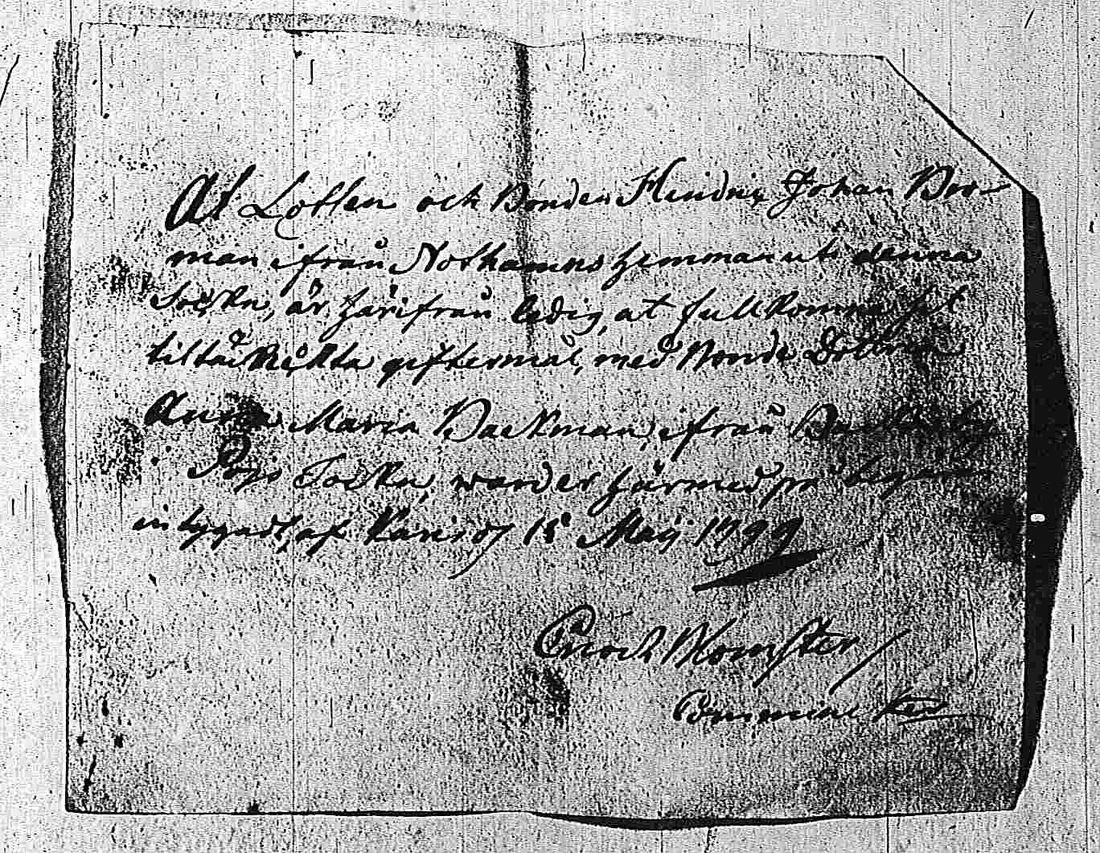 At Lotsen och Bonden Hindrix Johan Bro-
man ifrån Nothamns hemman uti denna
Sockn, är härifrån ledig, at fullkomna sit
giftermål, med Bonde Dottren
Anna Maria Backman, ifrån
Pojo Sockn, warder härmed på begäran
intygadt, af Karis d 18 Maij 1799
Enoch Blomster